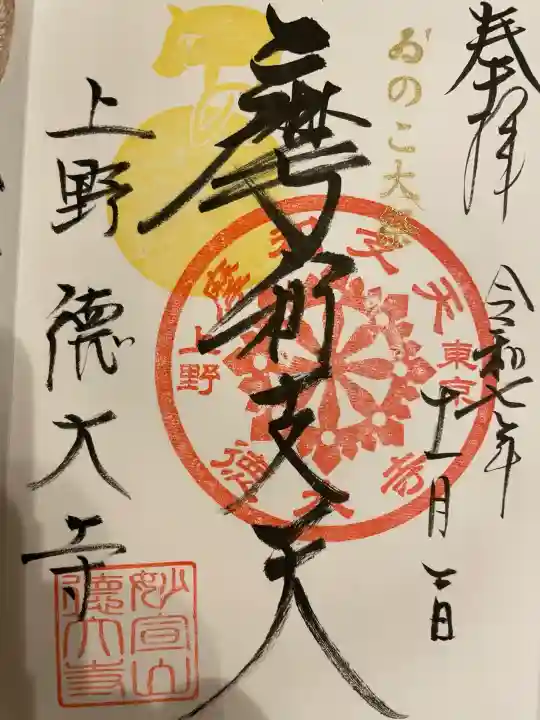 奉拝
令和七年
十一月一日
ゐのこ大祭
摩利支天
摩利支天
東京
上野
徳大寺
上野 徳大寺
妙宣山
徳大寺